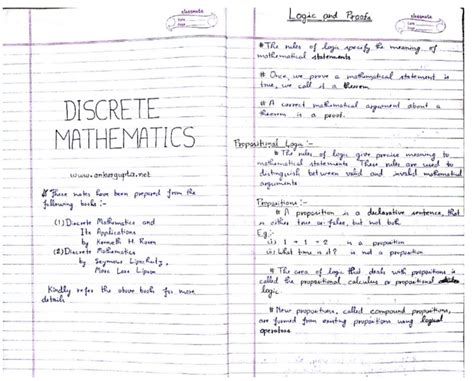 classmate
Date
Page
DISCRETE
MATHEMATICS
www.onkargupta.net
# These notes have been prepared from the
following books :-
(1) Discrete Mathematics and
Its Applications
by Kenneth H. Rosen
(2) Discrete Mathematics
by Seymour Lipschutz,
Marc Lars Lipson
Kindly refer the above books for more
details
Logic and Proofs
classmate
Date
Page
# The rules of logic specify the meaning of
mathematical statements
# Once, we prove a mathematical statement is
true, we call it a theorem
# A correct mathematical argument about a
theorem is a proof.
Propositional Logic :-
# The rules of logic give precise meaning to
mathematical statements These rules are used to
distinguish between valid and invalid mathematical
arguments
Propositions :-
# A proposition is a declarative sentence, that
is either true or false, but not both
Eg:-
(i) 1 + 1 = 2 is a proposition
(ii) What time is it? is not a proposition
# The area of logic that deals with propositions is
called the propositional calculus or propositional
logic
# New propositions, called compound propositions,
are formed from existing propositions using logical
operators